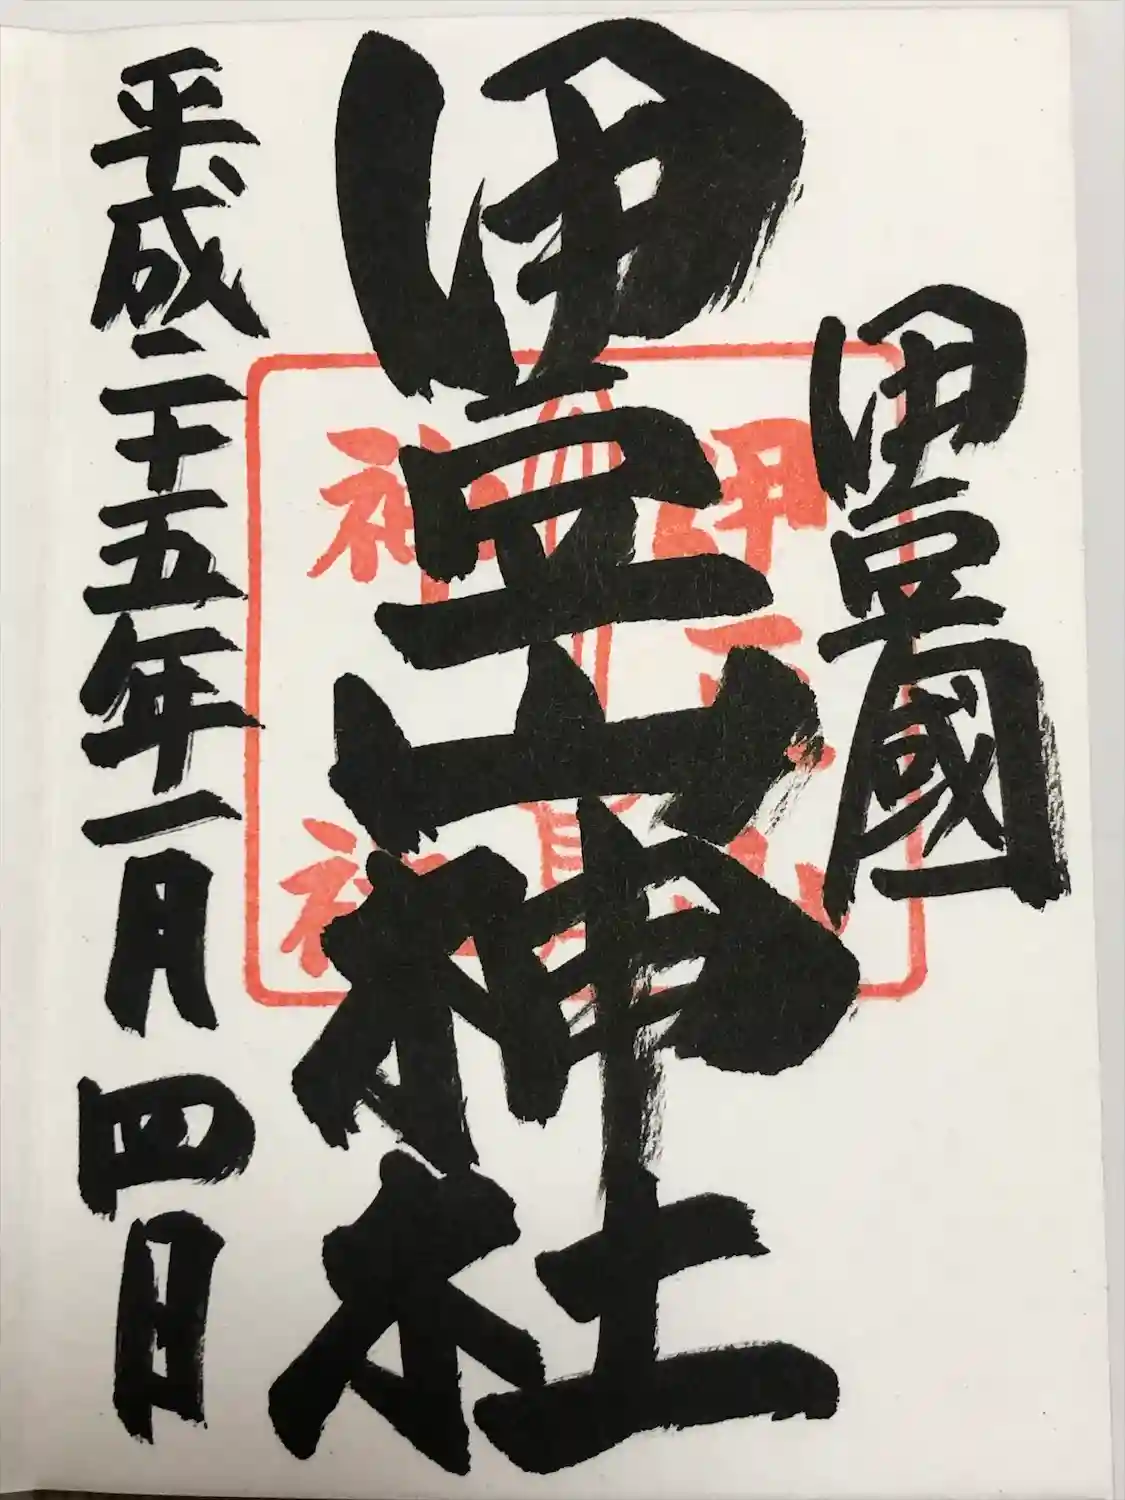 伊豆國
伊豆山神社
平成二十五年一月四日
伊豆山
神社